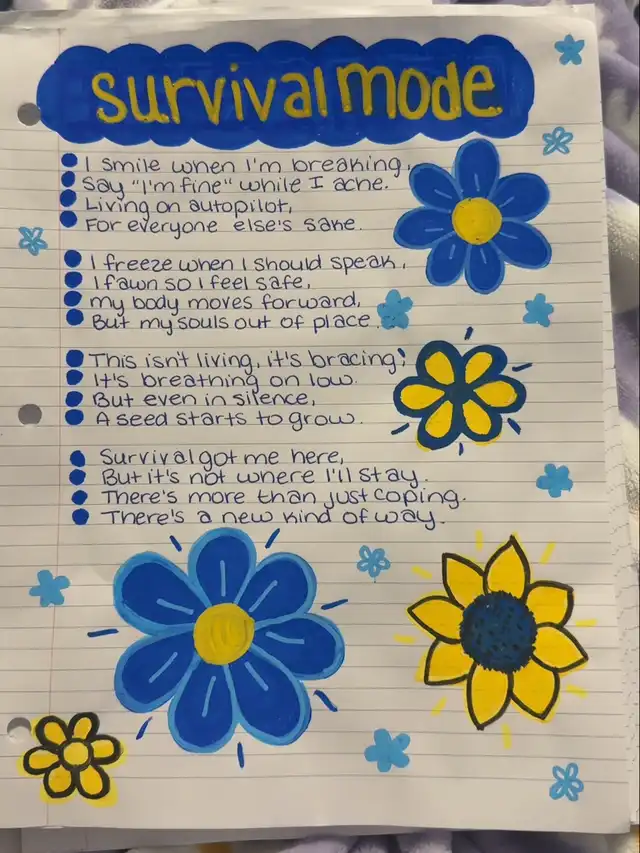 survival mode
I smile when I'm breaking,
Say "I'm fine" while I ache.
Living on autopilot,
For everyone else's sake.
I freeze when I should speak,
I fawn so I feel safe,
my body moves forward,
But my souls out of place.
This isn't living, it's bracing,
It's breathing on low.
But even in silence,
A seed starts to grow.
Survival got me here,
But it's not where I'll stay.
There's more than just coping.
There's a new kind of way.